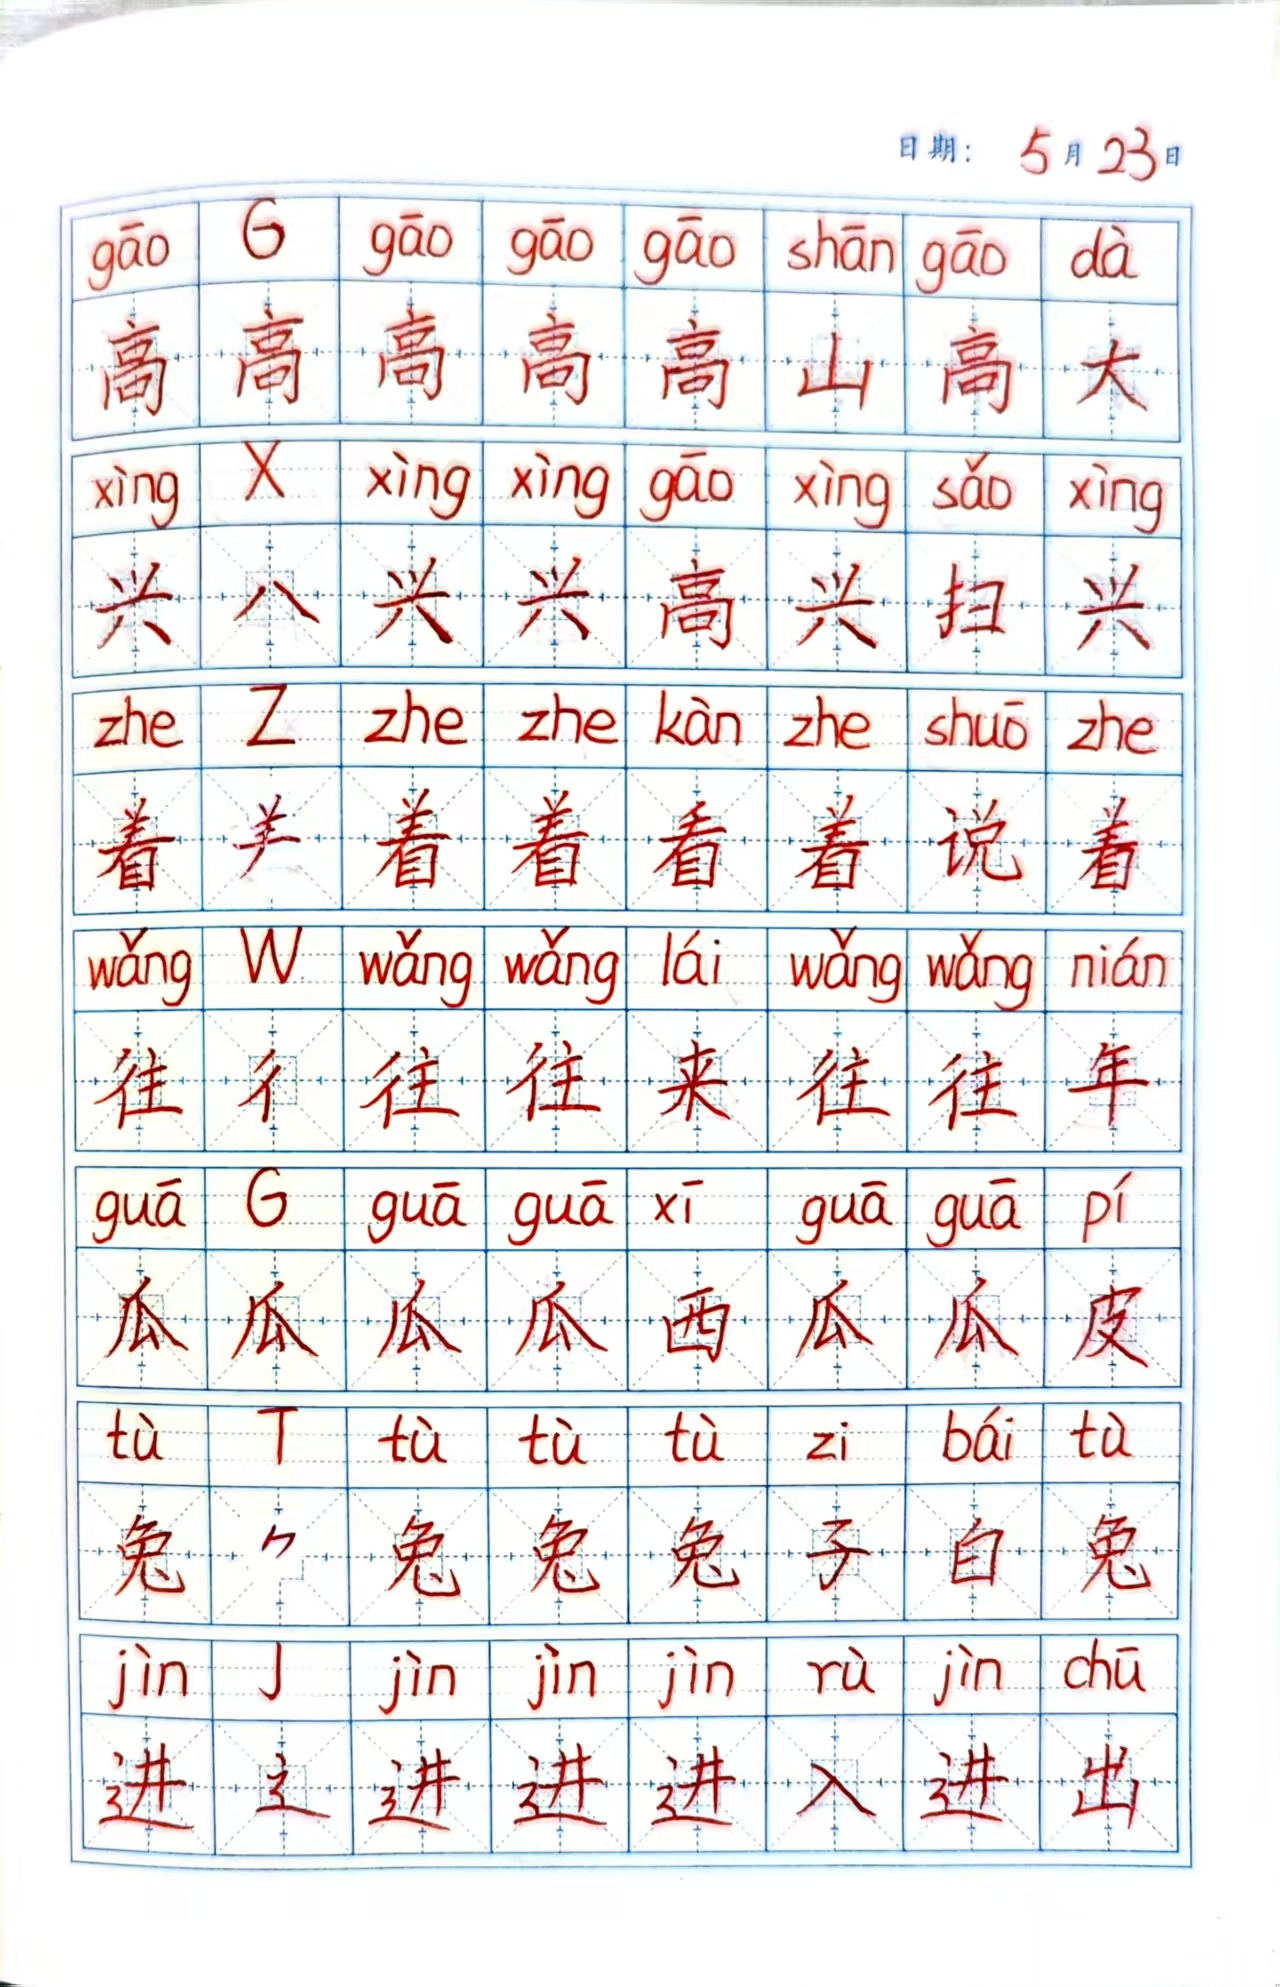 日期： 5月23日
gāo G gāo gāo gāo shān gāo dà
高 高 高 高 高 山 高 大
xìng X xìng xìng gāo xìng sǎo xìng
兴 八 兴 兴 高 兴 扫 兴
zhe Z zhe zhe kàn zhe shuō zhe
着 ⺶ 着 着 看 着 说 着
wǎng W wǎng wǎng lái wǎng wǎng nián
往 彳 往 往 来 往 往 年
guā G guā guā xī guā guā pí
瓜 瓜 瓜 瓜 西 瓜 瓜 皮
tù T tù tù tù zi bái tù
兔 ⺈ 兔 兔 兔 子 白 兔
jìn J jìn jìn jìn rù jìn chū
进 辶 进 进 进 入 进 出